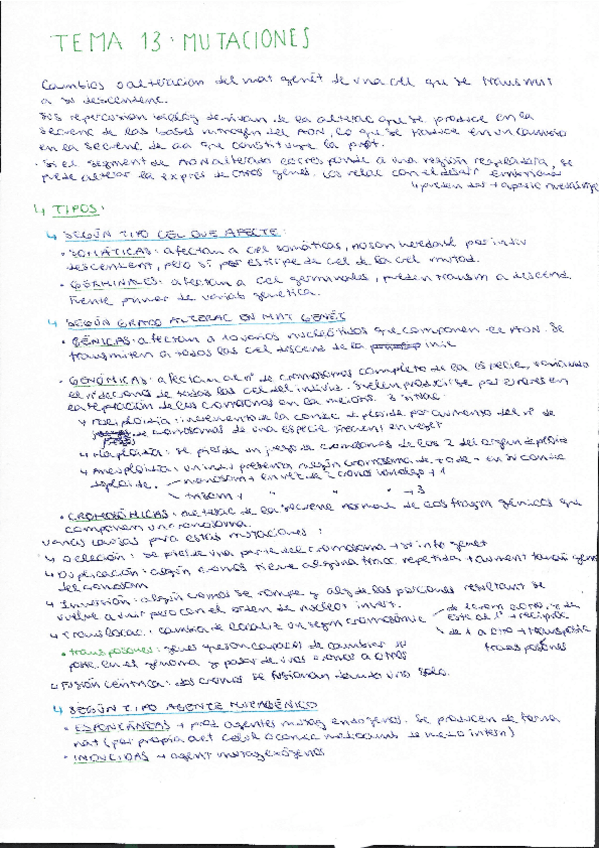 TEMA 13: MUTACIONES
Cambios o alteracion del mat genét de una cel que se transmit
a su descendenc.
Sus repercusion biolog derivan de la alterac que se produce en la
secuenc de las bases nitrogen del ADN, lo que se traduce en un cambio
en la secuenc de aa que constituye la prot.
· Si el segment de ADN alterado corresponde a una región reguladora, se
puede alterar la expres de otros genes. los relac con el desarr embrionar
↳ TIPOS:
↳ SEGÚN TIPO CEL QUE AFECTE:
· SOMÁTICAS: afectan a cel somáticas, no son heredabl por indiv
descendent, pero si por estirpe de cel de la cel mutad.
· GERMINALES: afectan a cel germinales, pueden transm a descend.
Fuente primar de variab genetica.
↳ SEGÚN GRADO ALTERAC EN MAT GENÉT
· GÉNICAS: afectan a 1 o varios nucleótidos que componen el ADN. Se
transmiten a todas las cel descend de la inic
· GENÓMICAS: afectan al nº de cromosomas completo de la especie, variando
el nº de crons de todas las cel del individ. Suelen producirse por errores en
la separación de los cromosomas en la meiosis. 3 vías:
↳ Poliploidía: incremento de la condic diploide por aumento del nº de
de cromosomas de una especie. Frecuent en veget
↳ Haploidía: se pierde un juego de cromosomas de los 2 del organ diploide
↳ Aneuploidía: un indiv presenta algún cromosoma de + o de - en su condic
diploide. monosom → en vez de 2 cromos homologo → 1
trisom → " " " → 3
· CROMOSÓMICAS: alterac de la secuenc normal de los fragm génicos que
componen un cromosoma.
varias causas para estas mutaciones:
↳ Deleción: se pierde una parte del cromosoma + su info genet
↳ Duplicación: algún cromos tiene algún trozo repetido → aument tamañ gen
del cromosom
↳ Inversión: algún cromos se rompe y alg de las porciones resultant se
vuelve a unir pero con el orden de nucleot invert.
↳ Translocac: cambia de localiz un segm cromosómic
de 1 crom a otro, y de
este al 1º → recíproc
de 1 a otro → transposic
transposones
· transposones: genes que son capaces de cambiar su
posic. en el genoma y pasar de unos cromos a otros
↳ Fusión céntrica: dos cromos se fusionan dando uno solo.
↳ SEGÚN TIPO AGENTE MUTAGÉNICO
· ESPONTÁNEAS → prod agentes mutag endógenos. Se producen de forma
nat (por propia act celul o condic medioamb de medio intern)
· INDUCIDAS → agent mutag exógenos